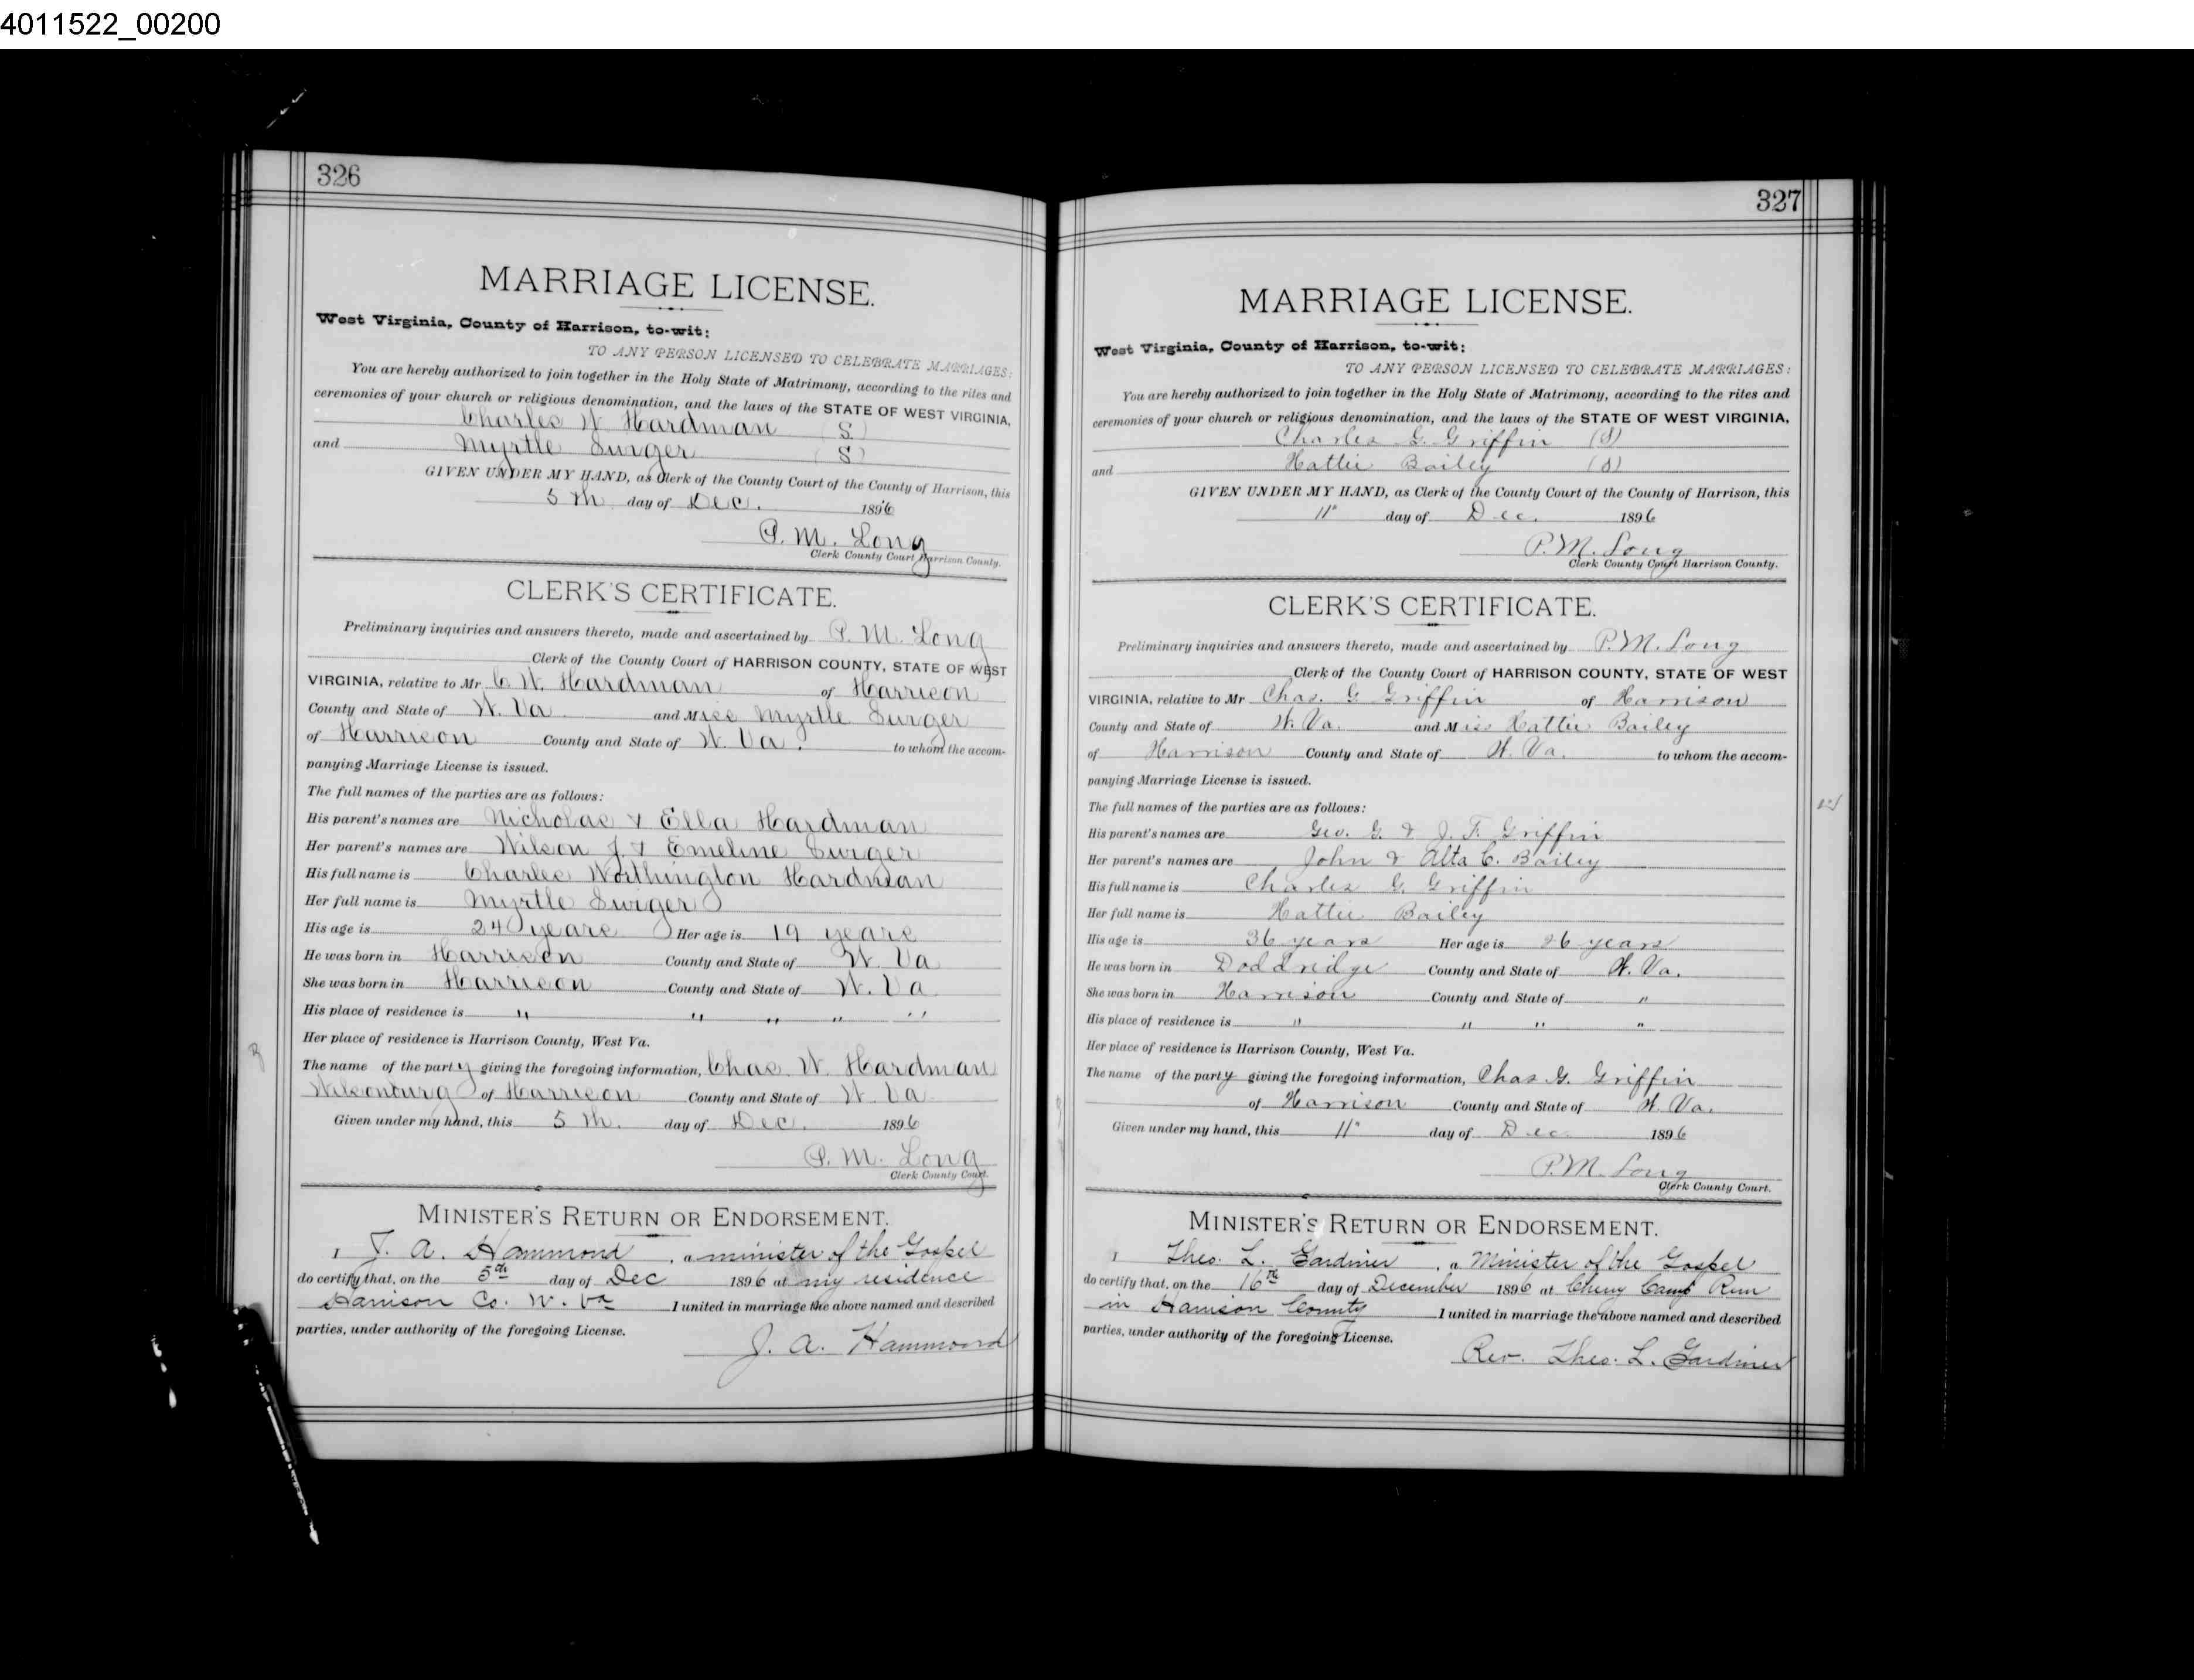 4011522_00200
326
MARRIAGE LICENSE.
West Virginia, County of Harrison, to-wit:
TO ANY PERSON LICENSED TO CELEBRATE MARRIAGES:
You are hereby authorized to join together in the Holy State of Matrimony, according to the rites and
ceremonies of your church or religious denomination, and the laws of the STATE OF WEST VIRGINIA,
Charles W. Hardman (S)
and Myrtle Swiger (S)
GIVEN UNDER MY HAND, as Clerk of the County Court of the County of Harrison, this
5th day of Dec. 1896
P. M. Long
Clerk County Court Harrison County.
CLERK'S CERTIFICATE.
Preliminary inquiries and answers thereto, made and ascertained by P. M. Long
Clerk of the County Court of HARRISON COUNTY, STATE OF WEST
VIRGINIA, relative to Mr C W. Hardman of Harrison
County and State of W. Va and Miss Myrtle Swiger
of Harrison County and State of W. Va. to whom the accom-
panying Marriage License is issued.
The full names of the parties are as follows:
His parent's names are Nicholas & Ella Hardman
Her parent's names are Wilson J. & Emeline Swiger
His full name is Charles Worthington Hardman
Her full name is Myrtle Swiger
His age is 24 years Her age is 19 years
He was born in Harrison County and State of W. Va
She was born in Harrison County and State of W. Va
His place of residence is " " " " "
Her place of residence is Harrison County, West Va.
The name of the party giving the foregoing information, Chas. W. Hardman
Wilsonburg of Harrison County and State of W. Va.
Given under my hand, this 5th. day of Dec. 1896
P. M. Long
Clerk County Court.
MINISTER'S RETURN OR ENDORSEMENT.
I J. A. Hammond, a minister of the Gospel
do certify that, on the 5th day of Dec 1896 at my residence
Harrison Co. W. Va I united in marriage the above named and described
parties, under authority of the foregoing License.
J. A. Hammond
327
MARRIAGE LICENSE.
West Virginia, County of Harrison, to-wit:
TO ANY PERSON LICENSED TO CELEBRATE MARRIAGES:
You are hereby authorized to join together in the Holy State of Matrimony, according to the rites and
ceremonies of your church or religious denomination, and the laws of the STATE OF WEST VIRGINIA,
Charles G. Griffin (S)
and Hattie Bailey (S)
GIVEN UNDER MY HAND, as Clerk of the County Court of the County of Harrison, this
11" day of Dec. 1896
P. M. Long
Clerk County Court Harrison County.
CLERK'S CERTIFICATE.
Preliminary inquiries and answers thereto, made and ascertained by P. M. Long
Clerk of the County Court of HARRISON COUNTY, STATE OF WEST
VIRGINIA, relative to Mr Chas. G Griffin of Harrison
County and State of W. Va. and Miss Hattie Bailey
of Harrison County and State of W. Va. to whom the accom-
panying Marriage License is issued.
The full names of the parties are as follows:
His parent's names are Geo. G. & J. F. Griffin
Her parent's names are John & Alta C. Bailey
His full name is Charles G. Griffin
Her full name is Hattie Bailey
His age is 36 years Her age is 26 years
He was born in Doddridge County and State of W. Va.
She was born in Harrison County and State of "
His place of residence is " " " "
Her place of residence is Harrison County, West Va.
The name of the party giving the foregoing information, Chas G. Griffin
of Harrison County and State of W. Va.
Given under my hand, this 11" day of Dec 1896
P. M. Long
Clerk County Court.
MINISTER'S RETURN OR ENDORSEMENT.
I Theo. L. Gardiner, a Minister of the Gospel
do certify that, on the 16th day of December 1896 at Cherry Camp Run
in Harrison County I united in marriage the above named and described
parties, under authority of the foregoing License.
Rev. Theo. L. Gardiner